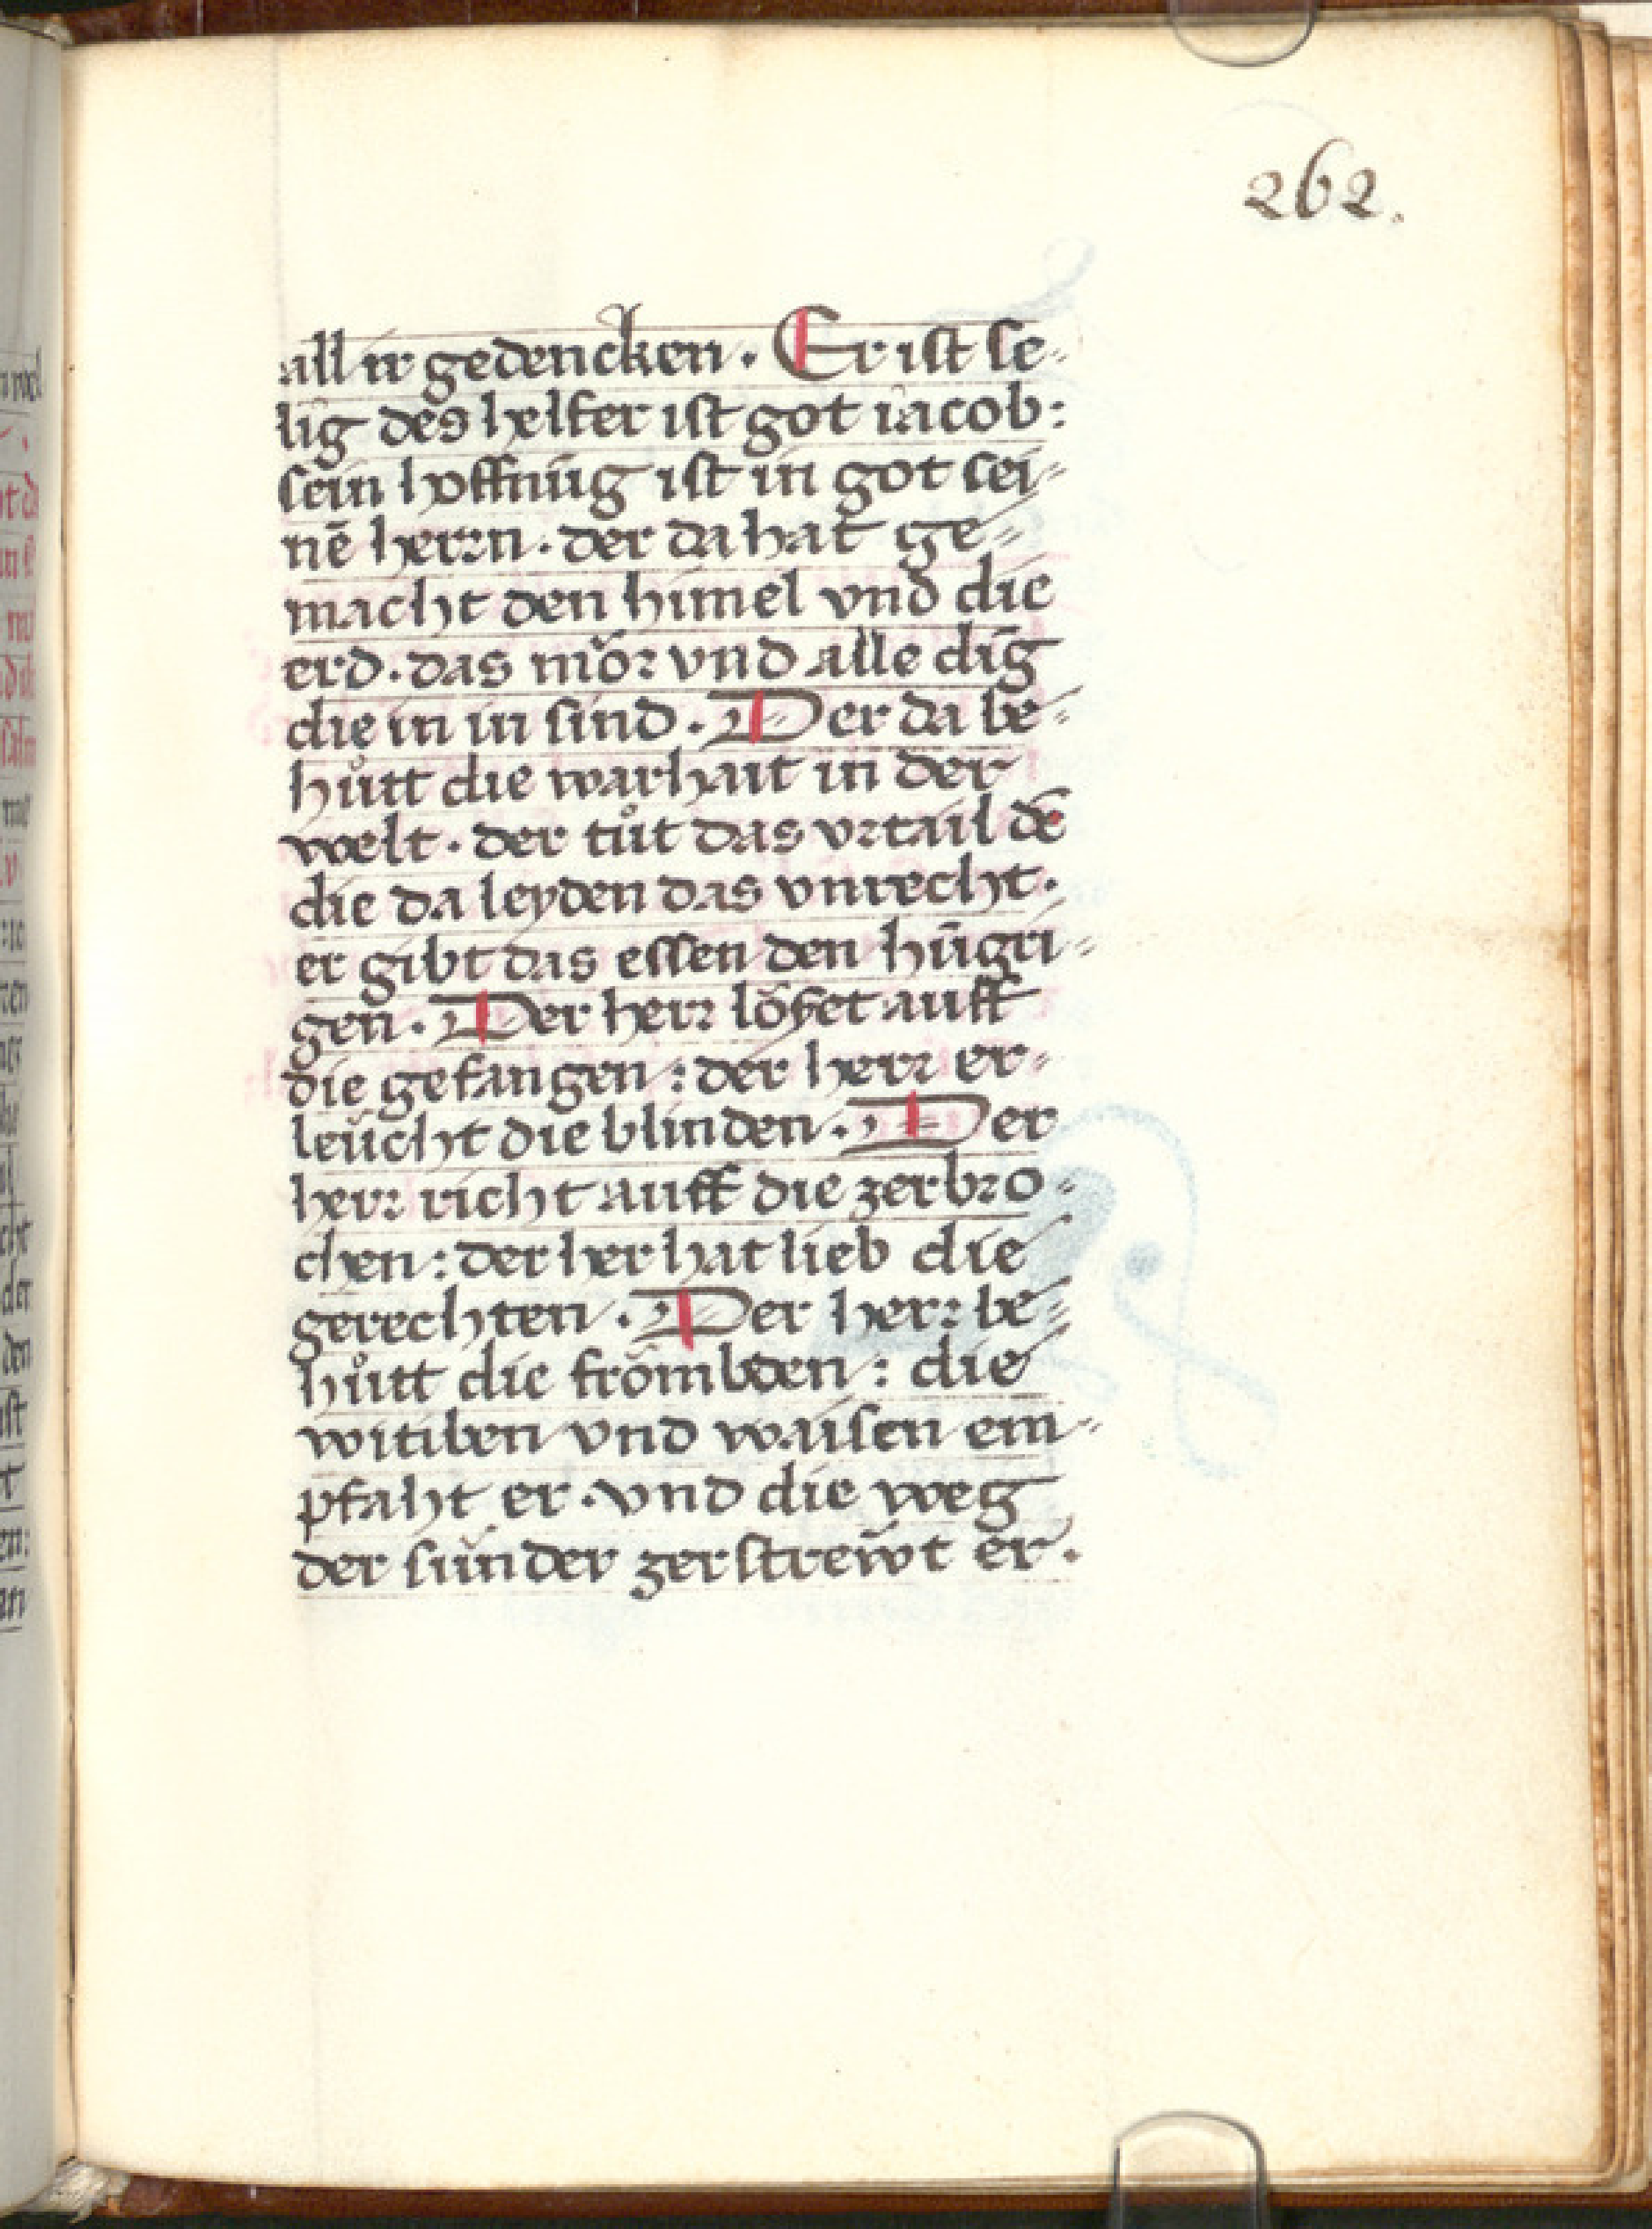 262.
all ir gedencken · Er ist se-
lig des helfer ist got iacob:
sein hoffnūg ist in got sei-
nē herrn · der da hat ge-
macht den himel vnd die
erd · das mör vnd alle dīg
die in in sind · Der da be-
hůtt die warhait in der
welt · der tůt das vrtail dē
die da leyden das vnrecht ·
er gibt das essen den hūgri-
gen · Der herr löset auff
die gefangen : der herr er-
leücht die blinden · Der
herr richt auff die zerbro-
chen : der her hat lieb die
gerechten · Der herr be-
hůtt die frömbden : die
witiben vnd waisen em-
pfaht er · vnd die weg
der sünder zerstrewt er ·